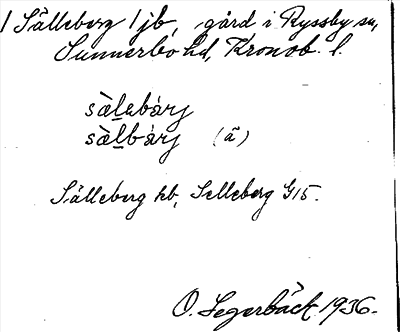 1 Sälleberg 1 jb, gård i Ryssby sn,
Sunnerbo hd, Kronob. l.
sàlebárj
sàlbárj (ä)
Sälleberg hb, Selleberg G15.
O. Segerbäck 1936.